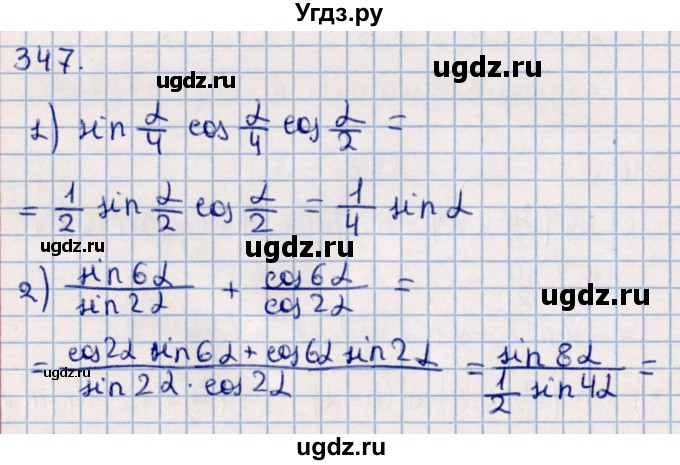 Угдз.ру
347.
ugdz.ru ugdz.ru
1) sin α/4 cos α/4 cos α/2 =
= 1/2 sin α/2 cos α/2 = 1/4 sin α
ugdz.ru ugdz.ru
2) sin6α/sin2α + cos6α/cos2α =
ugdz.ru
= (cos2α sin6α + cos6α sin2α)/(sin2α · cos2α) = sin8α/(1/2 sin4α) =
ugdz.ru ugdz.ru